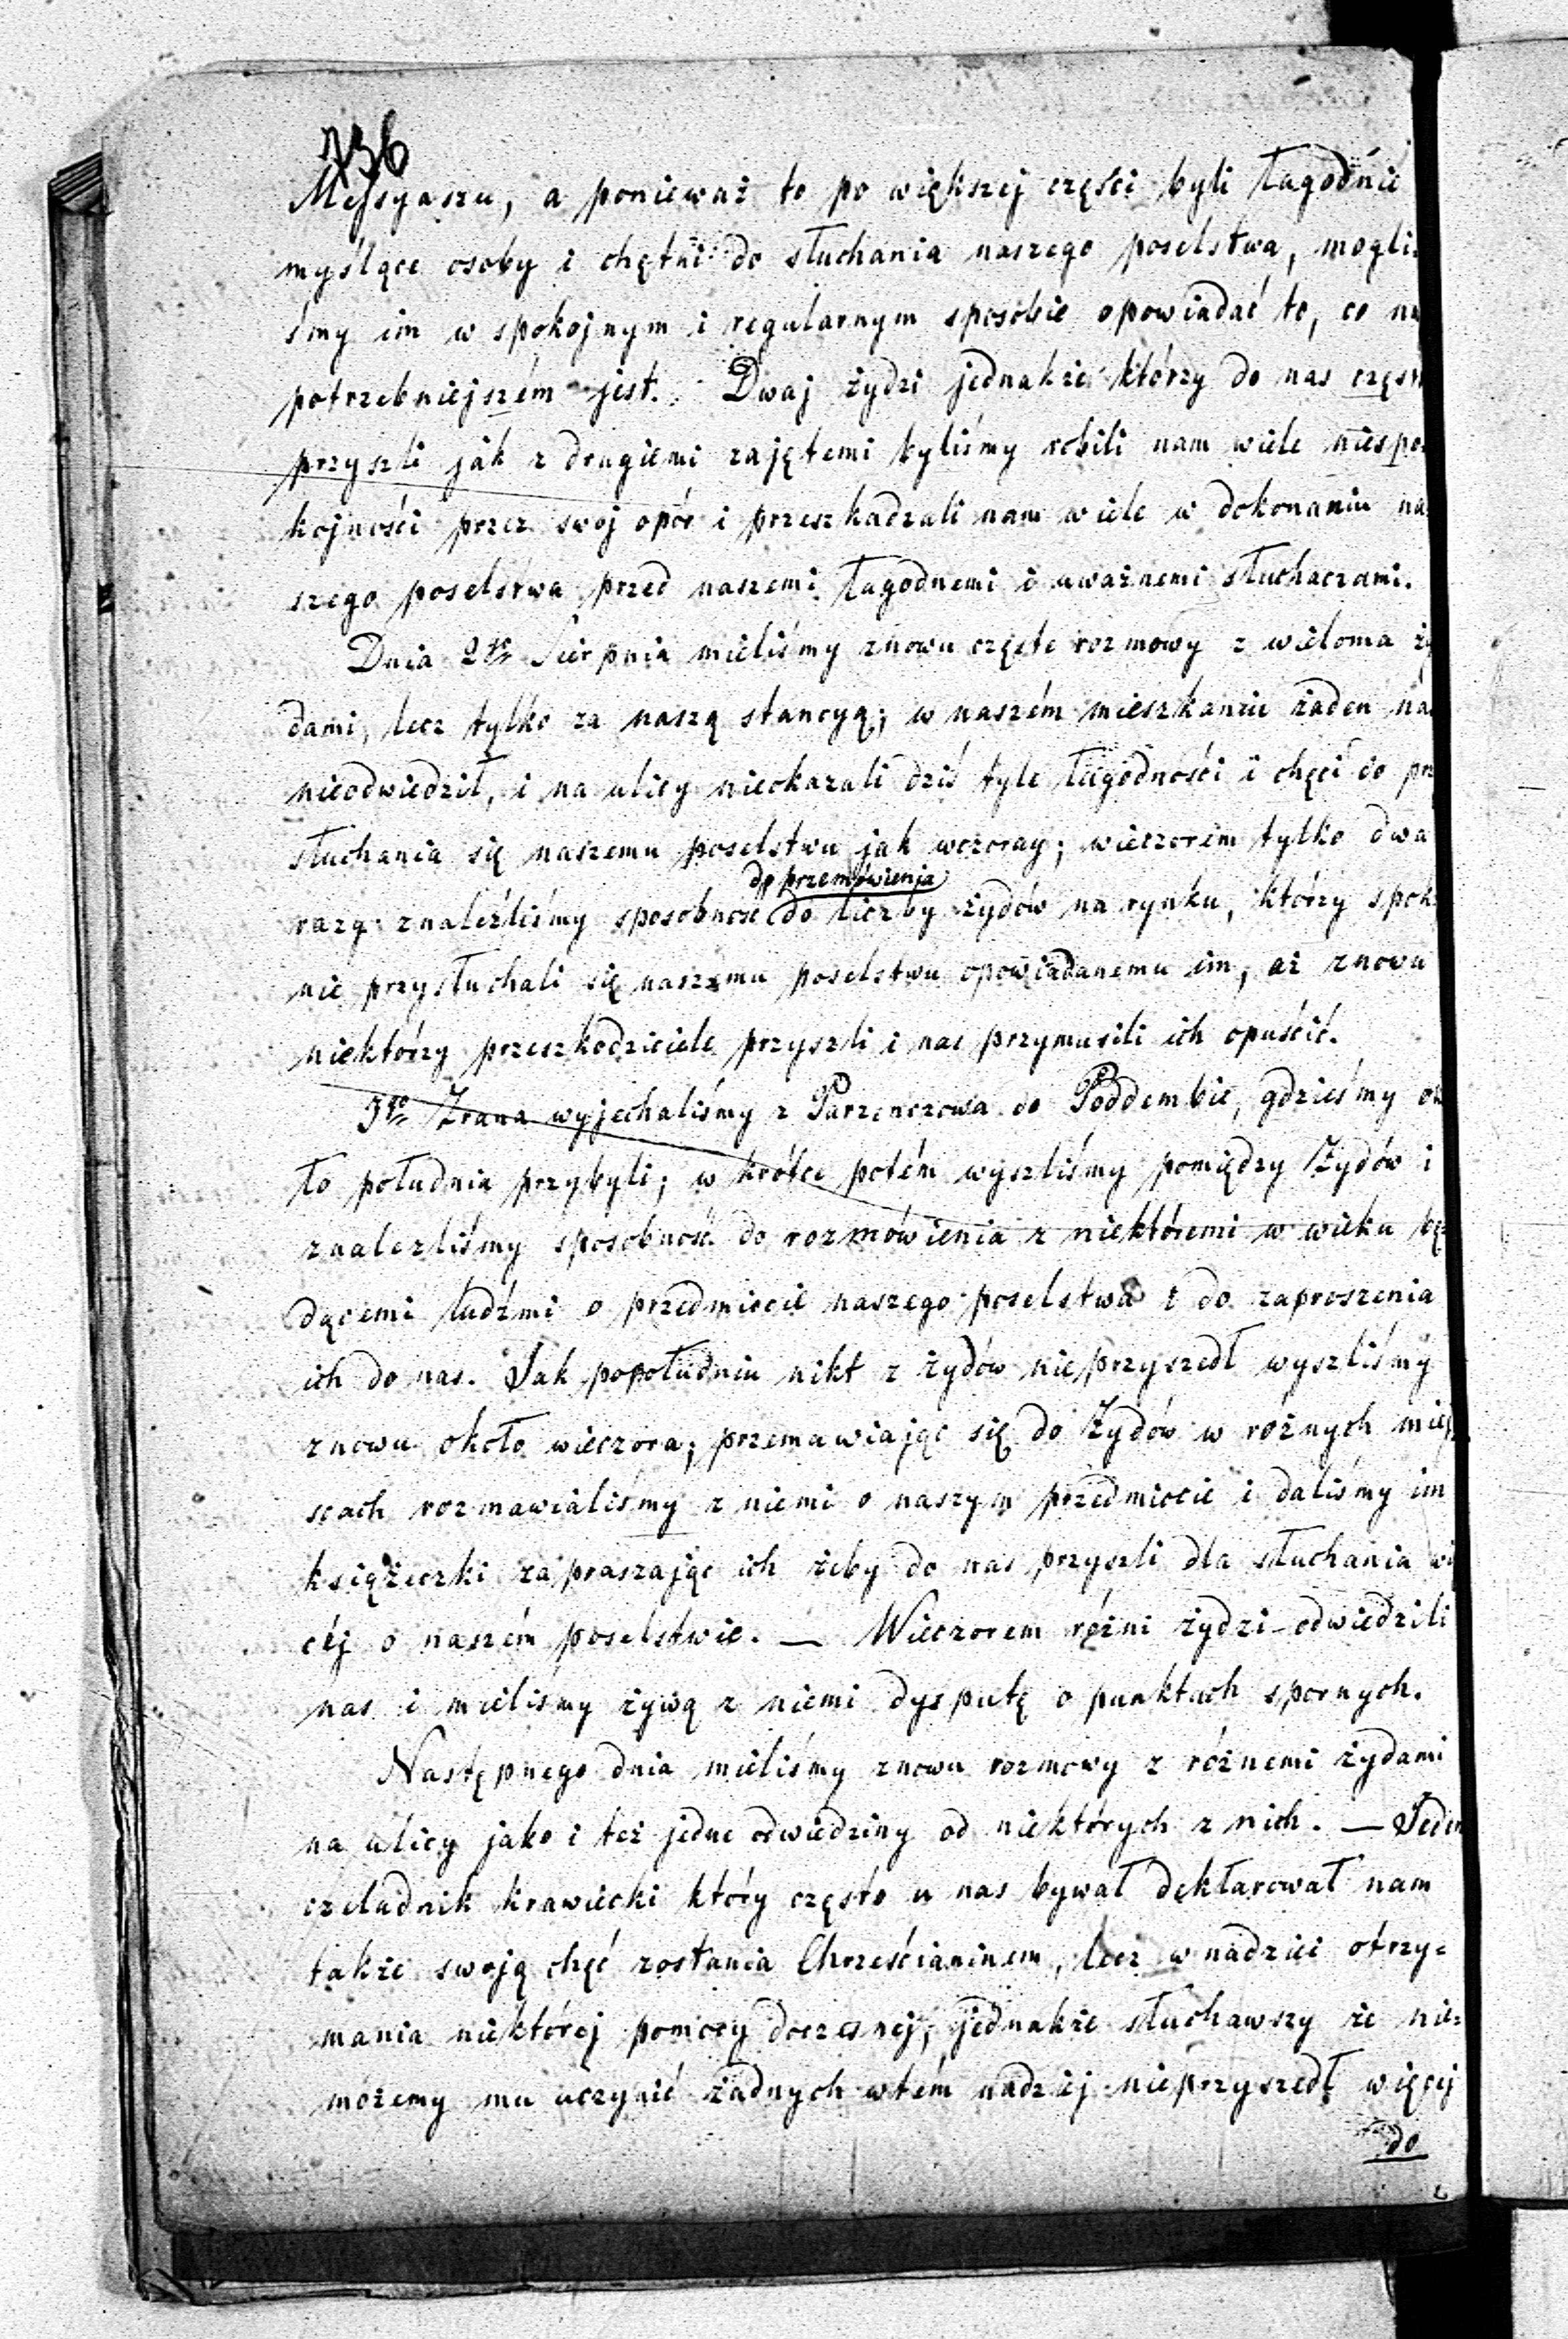 736
Messyaszu, a ponieważ to po większej części byli łagodnie
myślące osoby i chętni do słuchania naszego poselstwa, mogli-
śmy im w spokojnym i regularnym sposobie opowiadać to, co na
potrzebniejszém jest. Dwaj żydzi jednakże którzy do nas częst
przyszli jak z drugiemi zajętemi byliśmy robili nam wiele niespo-
kojności przez swoj opór i przeszkadzali nam wiele w dokonaniu na
szego poselstwa przed naszemi łagodnemi i uważnemi słuchaczami.
Dnia 2go Sierpnia mieliśmy znowu częste rozmowy z wieloma ży
dami, lecz tylko za naszą stancyą; w naszém mieszkaniu żaden na
nieodwiedził, i na ulicy nieokazali dziś tyle łagodności i chęci do prz
słuchania się naszemu poselstwu jak wczoray; wieczorem tylko dwa
do przemówienia
razą znaleźliśmy sposobność do liczby żydów na rynku, którzy spok
nie przysłuchali się naszemu poselstwu opowiadanemu im, aż znowu
niektórzy przeszkodziciele przyszli i nas przymusili ich opuścić.
3go Zrana wyjechaliśmy z Parzenczowa do Poddembie, gdzieśmy ok
ło południa przybyli; w krótce potém wyszliśmy pomiędzy Żydów i
znalezliśmy sposobność do rozmówienia z niektóremi w wieku bę
dącemi ludźmi o przedmiocie naszego poselstwa i do zaproszenia
ich do nas. Jak popołudniu nikt z żydów nieprzyszedł wyszliśmy
znowu około wieczora; przemawiając się do Żydów w rożnych miej
scach rozmawialiśmy z niemi o naszym przedmiocie i daliśmy im
książeczki zapraszając ich żeby do nas przyszli dla słuchania wię
céj o naszém poselstwie. — Wieczorem różni żydzi odwiedzili
nas i mieliśmy żywą z niemi dysputę o punktach spornych.
Następnego dnia mieliśmy znowu rozmowy z różnemi żydami
na ulicy jako i też jedne odwiedziny od niektórych z nich. — Jeden
czeladnik krawiecki który często u nas bywał deklarował nam
także swoją chęć zostania Chrześcianinem, lecz w nadziei otrzy=
mania niektórej pomocy doczesnej; jednakże słuchawszy że nie=
możemy mu uczynić żadnych wtém nadziej nieprzyszedł więcej
do